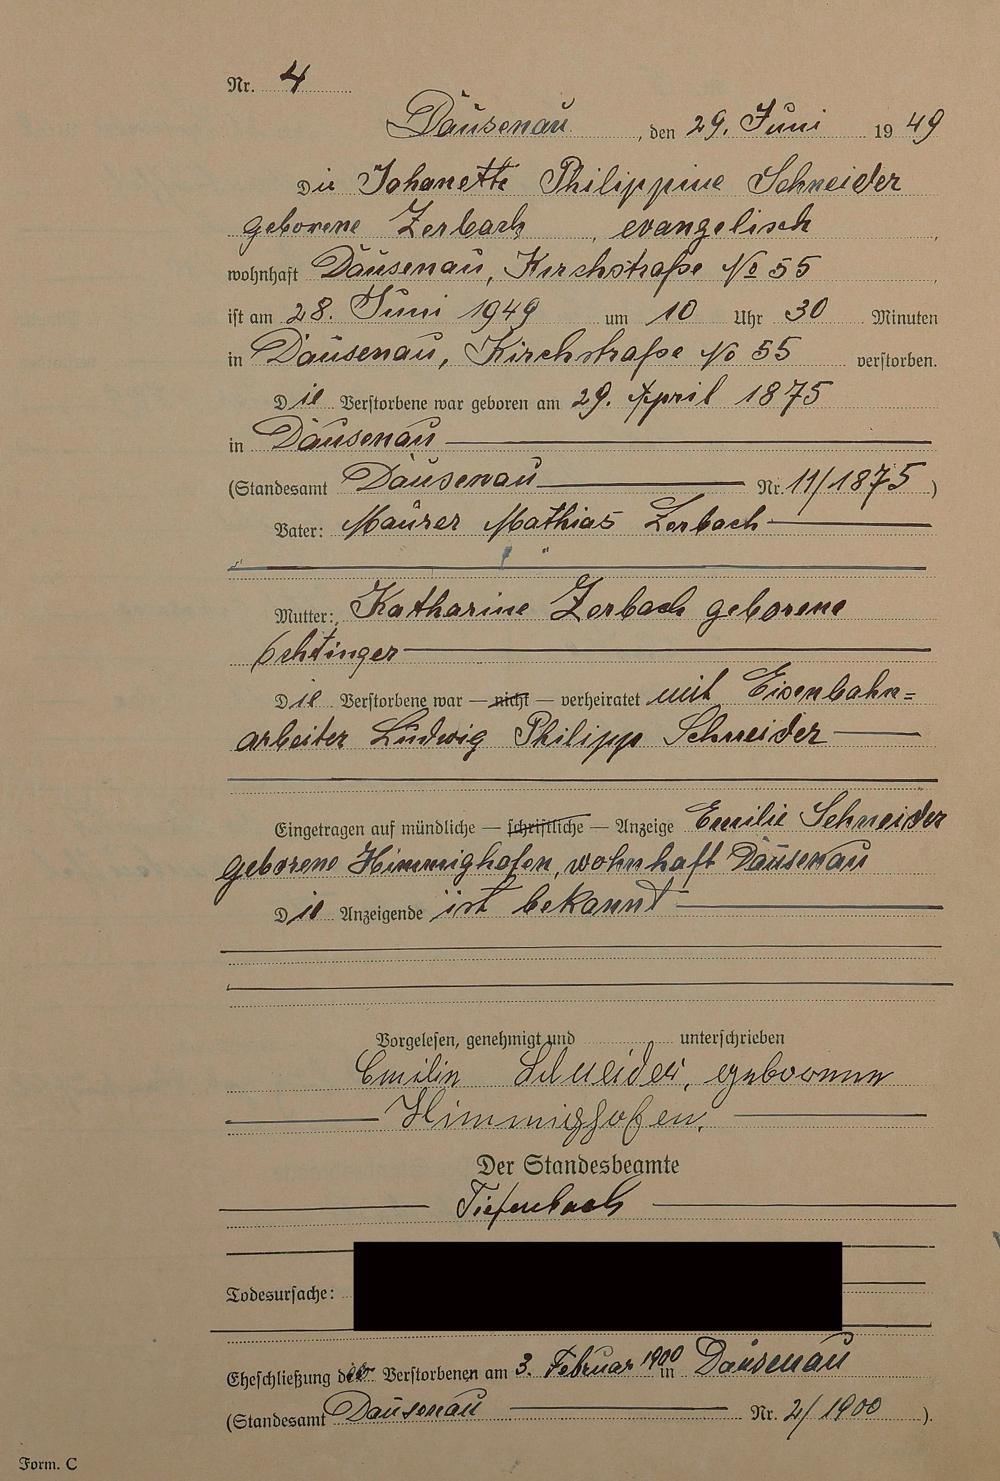 Nr. 4
Dausenau, den 29. Juni 1949
Die Johanette Philippine Schneider
geborene Zerbach, evangelisch,
wohnhaft Dausenau, Kirchstraße No 55,
ist am 28. Juni 1949 um 10 Uhr 30 Minuten
in Dausenau, Kirchstraße No 55 verstorben.
Die Verstorbene war geboren am 29. April 1875
in Dausenau
(Standesamt Dausenau Nr. 11/1875)
Vater: Maurer Mathias Zerbach
Mutter: Katharine Zerbach geborene
Die Verstorbene war — nicht — verheiratet mit Eisenbahn=
arbeiter Ludwig Philipp Schneider
Eingetragen auf mündliche — schriftliche — Anzeige Emilie Schneider
geborene Himmighofen, wohnhaft Dausenau
Die Anzeigende ist bekannt
Vorgelesen, genehmigt und unterschrieben
Emilie Schneider, geborene
Himmighofen.
Der Standesbeamte
Tiefenbach
Todesursache:
Eheschließung der Verstorbenen am 3. Februar 1900 in Dausenau
(Standesamt Dausenau Nr. 2/1900).
Form. C